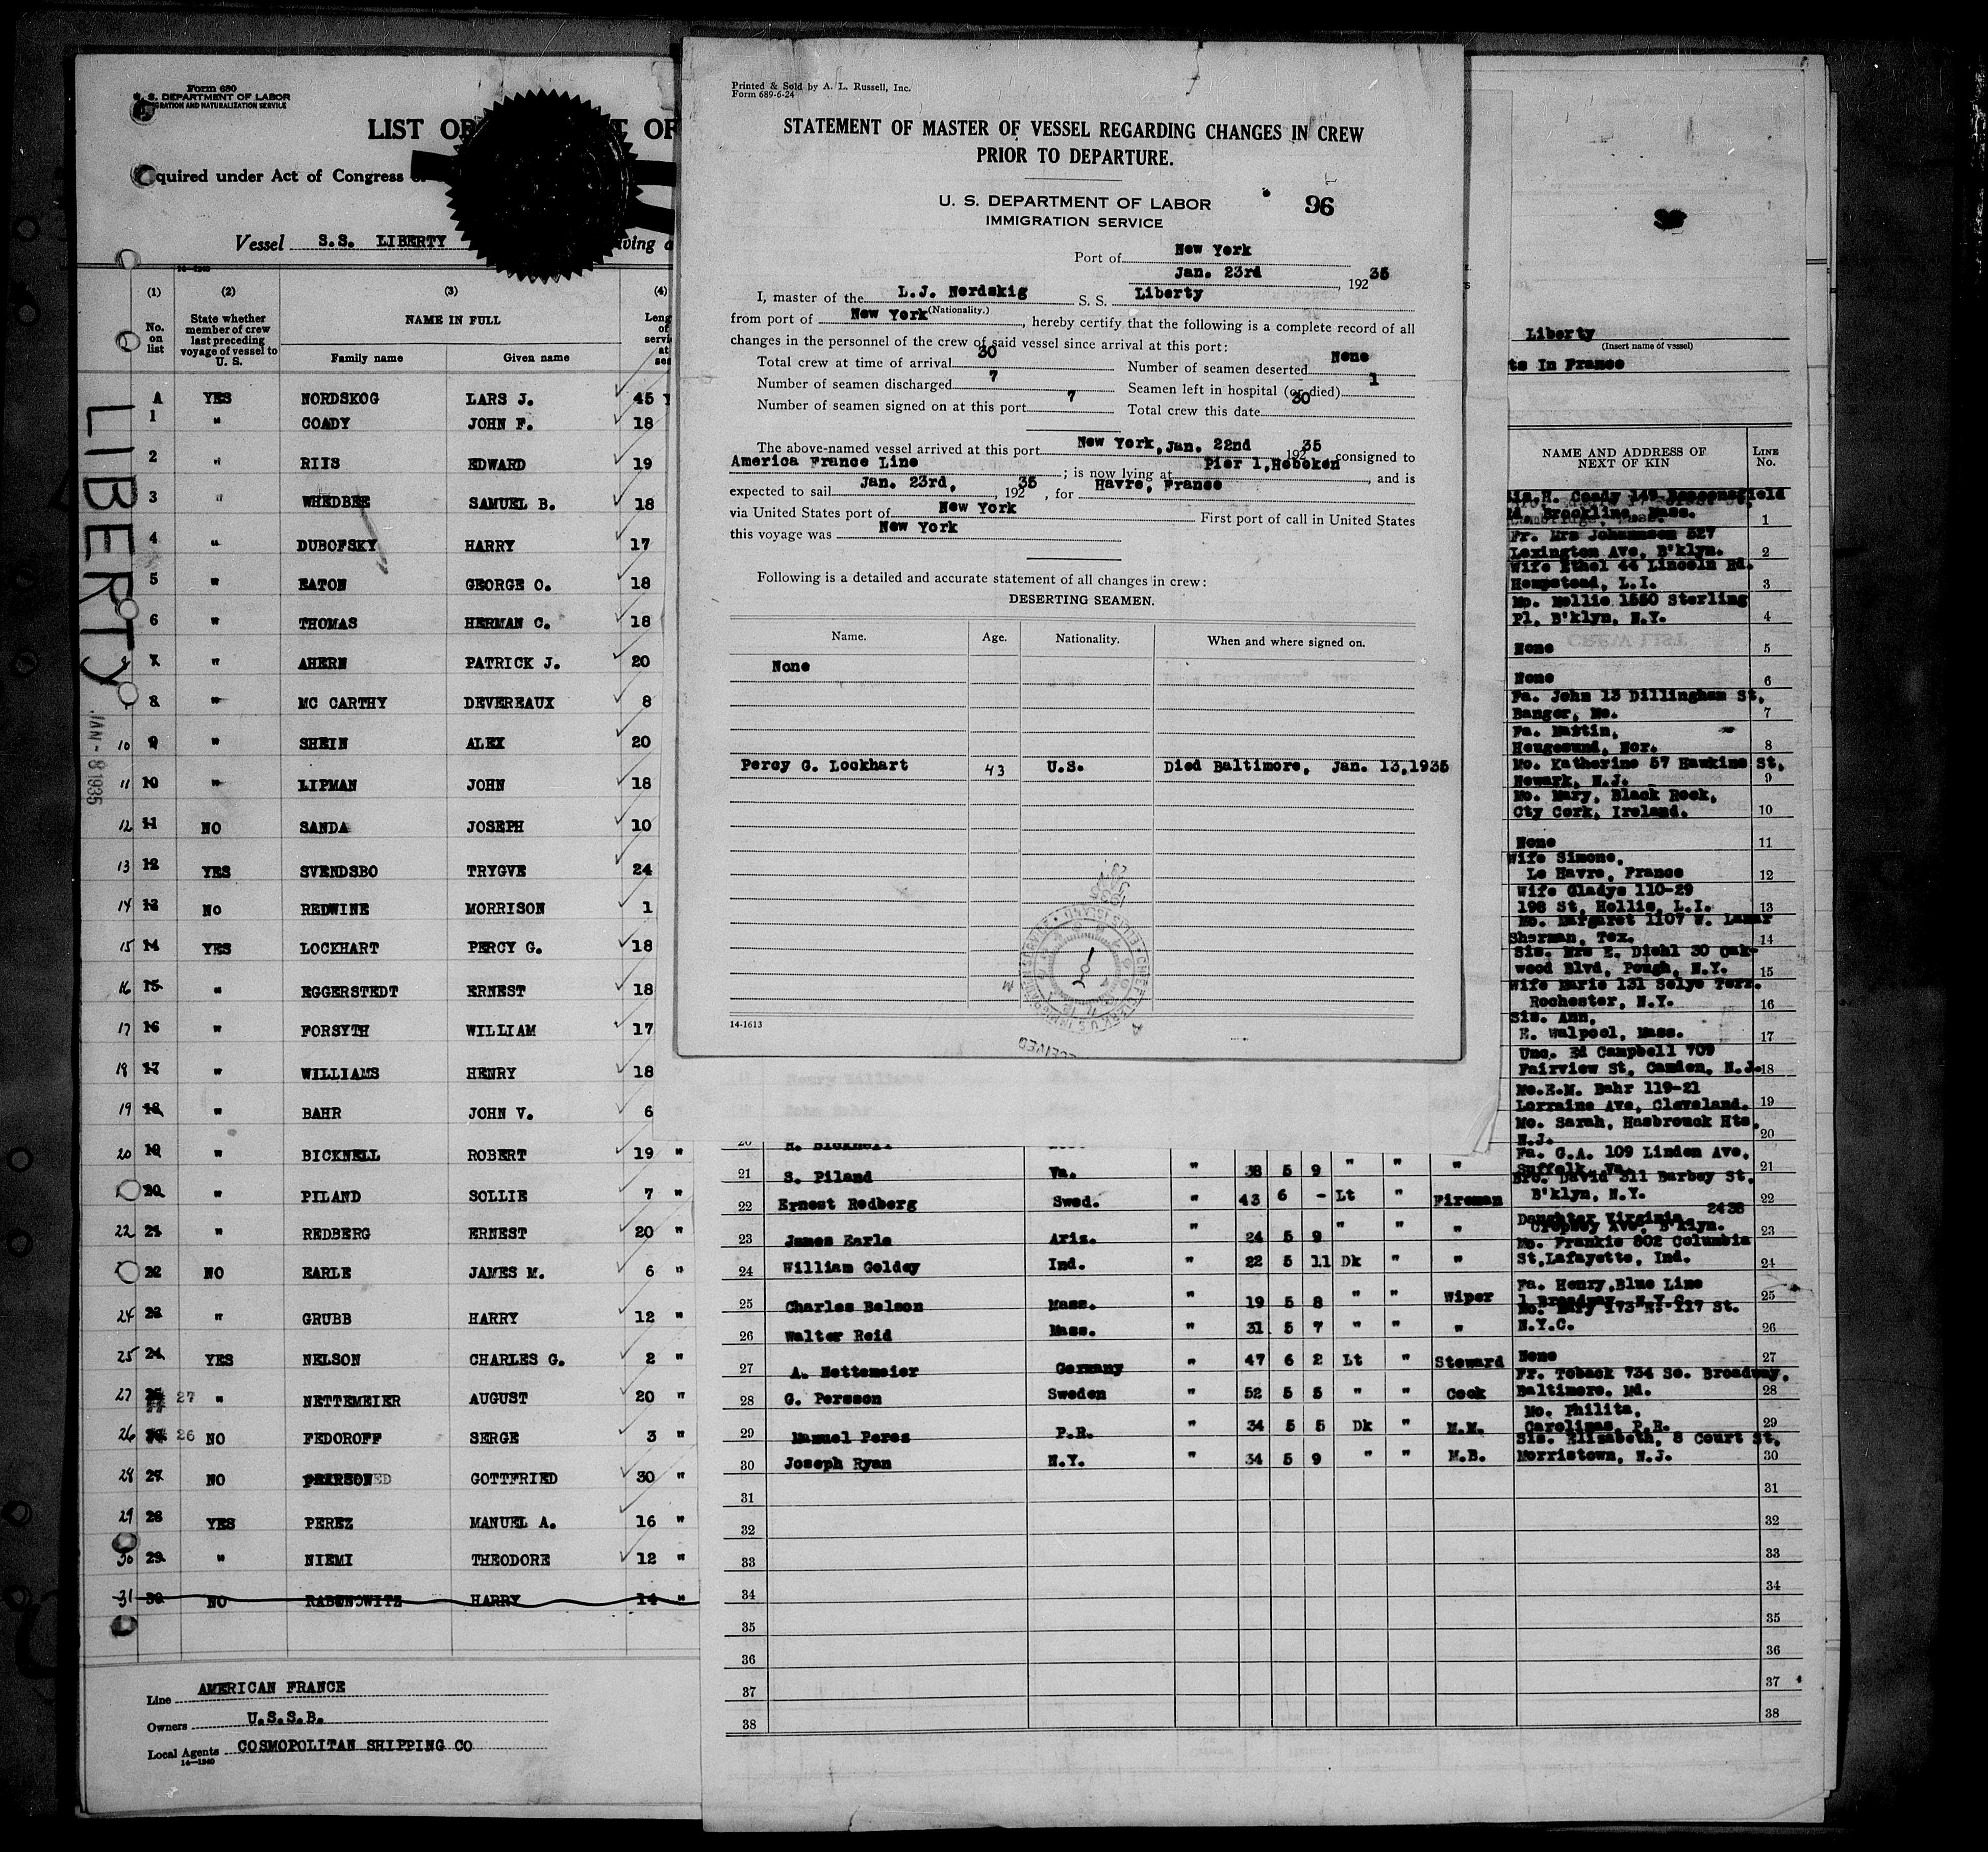 Form 680
U. S. DEPARTMENT OF LABOR
IMMIGRATION AND NATURALIZATION SERVICE
LIST OF
quired under Act of Congress
Vessel S.S. LIBERTY
14—1240
(1) (2) (3) (4)
No. on list
State whether member of crew last preceding voyage of vessel to U. S.
NAME IN FULL
Family name Given name
A YES NORDSKOG LARS J. 45
1 " COADY JOHN F. 18
2 " RIIS EDWARD 19
3 " WHEDBEE SAMUEL B. 18
4 " DUBOFSKY HARRY 17
5 " EATON GEORGE O. 18
6 " THOMAS HERMAN C. 18
7 " AHERN PATRICK J. 20
8 " MC CARTHY DEVEREAUX 8
10 9 " SHEIN ALEX 20
11 10 " LIPMAN JOHN 18
12 11 NO SANDA JOSEPH 10
13 12 YES SVENDSBO TRYGVE 24
14 13 No REDWINE MORRISON 1
15 14 YES LOCKHART PERCY G. 18
16 15 " EGGERSTEDT ERNEST 18
17 16 " FORSYTH WILLIAM 17
18 17 " WILLIAMS HENRY 18
19 18 " BAHR JOHN V. 6
20 19 " BICKNELL ROBERT 19 "
20 " PILAND SOLLIE 7 "
22 21 " REDBERG ERNEST 20 "
22 NO EARLE JAMES M. 6 "
24 23 " GRUBB HARRY 12 "
25 24 YES NELSON CHARLES G. 2 "
27 27 " NETTEMEIER AUGUST 20 "
26 26 NO FEDOROFF SERGE 3 "
28 27 NO GOTTFRIED 30 "
29 28 YES PEREZ MANUEL A. 16 "
30 29 " NIEMI THEODORE 12 "
31 30 NO RABENOWITZ HARRY 14 "
Line AMERICAN FRANCE
Owners U.S.S.B.
Local Agents COSMOPOLITAN SHIPPING CO
14—1240
LIBERTY
JAN - 8 1935
Printed & Sold by A. L. Russell, Inc.
Form 689-6-24
STATEMENT OF MASTER OF VESSEL REGARDING CHANGES IN CREW
PRIOR TO DEPARTURE.
U. S. DEPARTMENT OF LABOR
96
IMMIGRATION SERVICE
Port of New York
Jan. 23rd, 192 35
I, master of the L.J. Nordskig S. S. Liberty
(Nationality.)
from port of New York, hereby certify that the following is a complete record of all
changes in the personnel of the crew of said vessel since arrival at this port:
Total crew at time of arrival 30 Number of seamen deserted None
Number of seamen discharged 7 Seamen left in hospital (or died) 1
Number of seamen signed on at this port 7 Total crew this date 30
The above-named vessel arrived at this port New York, Jan. 22nd 192 35 consigned to
America France Line; is now lying at Pier 1, Hoboken, and is
expected to sail Jan. 23rd, 192 35, for Havre, France
via United States port of New York First port of call in United States
this voyage was New York
Following is a detailed and accurate statement of all changes in crew:
DESERTING SEAMEN.
Name. Age. Nationality. When and where signed on.
None
Percy G. Lockhart 43 U.S. Died Baltimore, Jan. 13,1935
14-1613
RECEIVED
Liberty
(Insert name of vessel)
ts In France
NAME AND ADDRESS OF NEXT OF KIN
LINE No.
Coady
Brookline, Mass. 1
Fr. Mrs Johannsen 527
Lexington Ave, B'klyn. 2
Wife Ethel 44 Lincoln Rd.
Hempstead, L.I. 3
Mo. Nellie 1550 Sterling
Pl, B'klyn, N.Y. 4
None 5
None 6
Fa. John 13 Dillingham St,
Bangor, Me. 7
Fa. Martin,
Haugesund, Nor. 8
Mo. Katherine 57 Hawkins St,
Newark, N.J. 9
Mo. Mary, Black Rock,
Cty Cork, Ireland. 10
None 11
Wife Simone,
Le Havre, France 12
Wife Gladys 110-29
198 St, Hollis, L.I. 13
Mo. Margaret 1107 W. Lamar
Sherman, Tex. 14
Sis. Mrs E. Diehl 30 Oak-
wood Blvd, Pough, N.Y. 15
Wife Marie 131 Selye Terr.
Rochester, N.Y. 16
Sis. Ann,
E. Walpool, Mass. 17
Unc. Ed Campbell 709
Fairview St, Camden, N.J. 18
Mo.E.M. Bahr 119-21
Lorraine Ave, Cleveland. 19
Mo. Sarah, Hasbrouck Hts,
N.J. 20
Fa. G.A. 109 Linden Ave,
21 S. Piland Va. " 38 5 9 " " " Suffolk, Va. 21
Bro. David 311 Barbey St,
22 Ernest Redberg Swed. " 43 6 - Lt " Fireman B'klyn, N.Y. 22
Daughter Virginia 2438
23 James Earle Aris. " 24 5 9 " " " Cropsey Ave, B'klyn. 23
Mo. Frankie 802 Columbia
24 William Goldey Ind. " 22 5 11 Dk " " St,Lafayette, Ind. 24
Fa. Henry,Blue Line
25 Charles Belson Mass. " 19 5 8 " " Wiper 1 Broadway, N.Y.C. 25
26 Walter Reid Mass. " 31 5 7 " " " N.Y.C. 26
27 A. Nettemeier Germany " 47 6 2 Lt " Steward None 27
Fr. Toback 734 So. Broadway,
28 G. Persson Sweden " 52 5 5 " " Cook Baltimore, Md. 28
Mo. Philita,
29 Manuel Peres P.R. " 34 5 5 Dk " M.M. Carolinas, P.R. 29
Sis. Elizabeth, 8 Court St,
30 Joseph Ryan N.Y. " 34 5 9 " " M.B. Morristown, N.J. 30
31 31
32 32
33 33
34 34
35 35
36 36
37 37
38 38